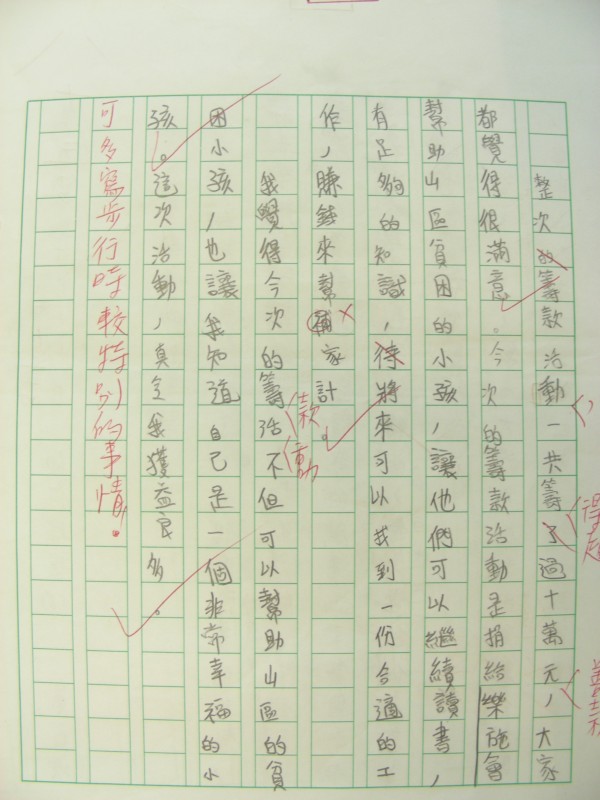 整次的籌款活動一共籌了過十萬元，大家
都覺得很滿意。今次的籌款活動是捐給樂施會
幫助山區貧困的小孩，讓他們可以繼續讀書，
有足夠的知識，待將來可以找到一份合適的工
作，賺錢來幫補家計。
我覺得今次的籌活不但可以幫助山區的貧
款
動
困小孩，也讓我知道自己是一個非常幸福的小
孩。這次活動，真令我獲益良多。
可多寫步行時較特別的事情！